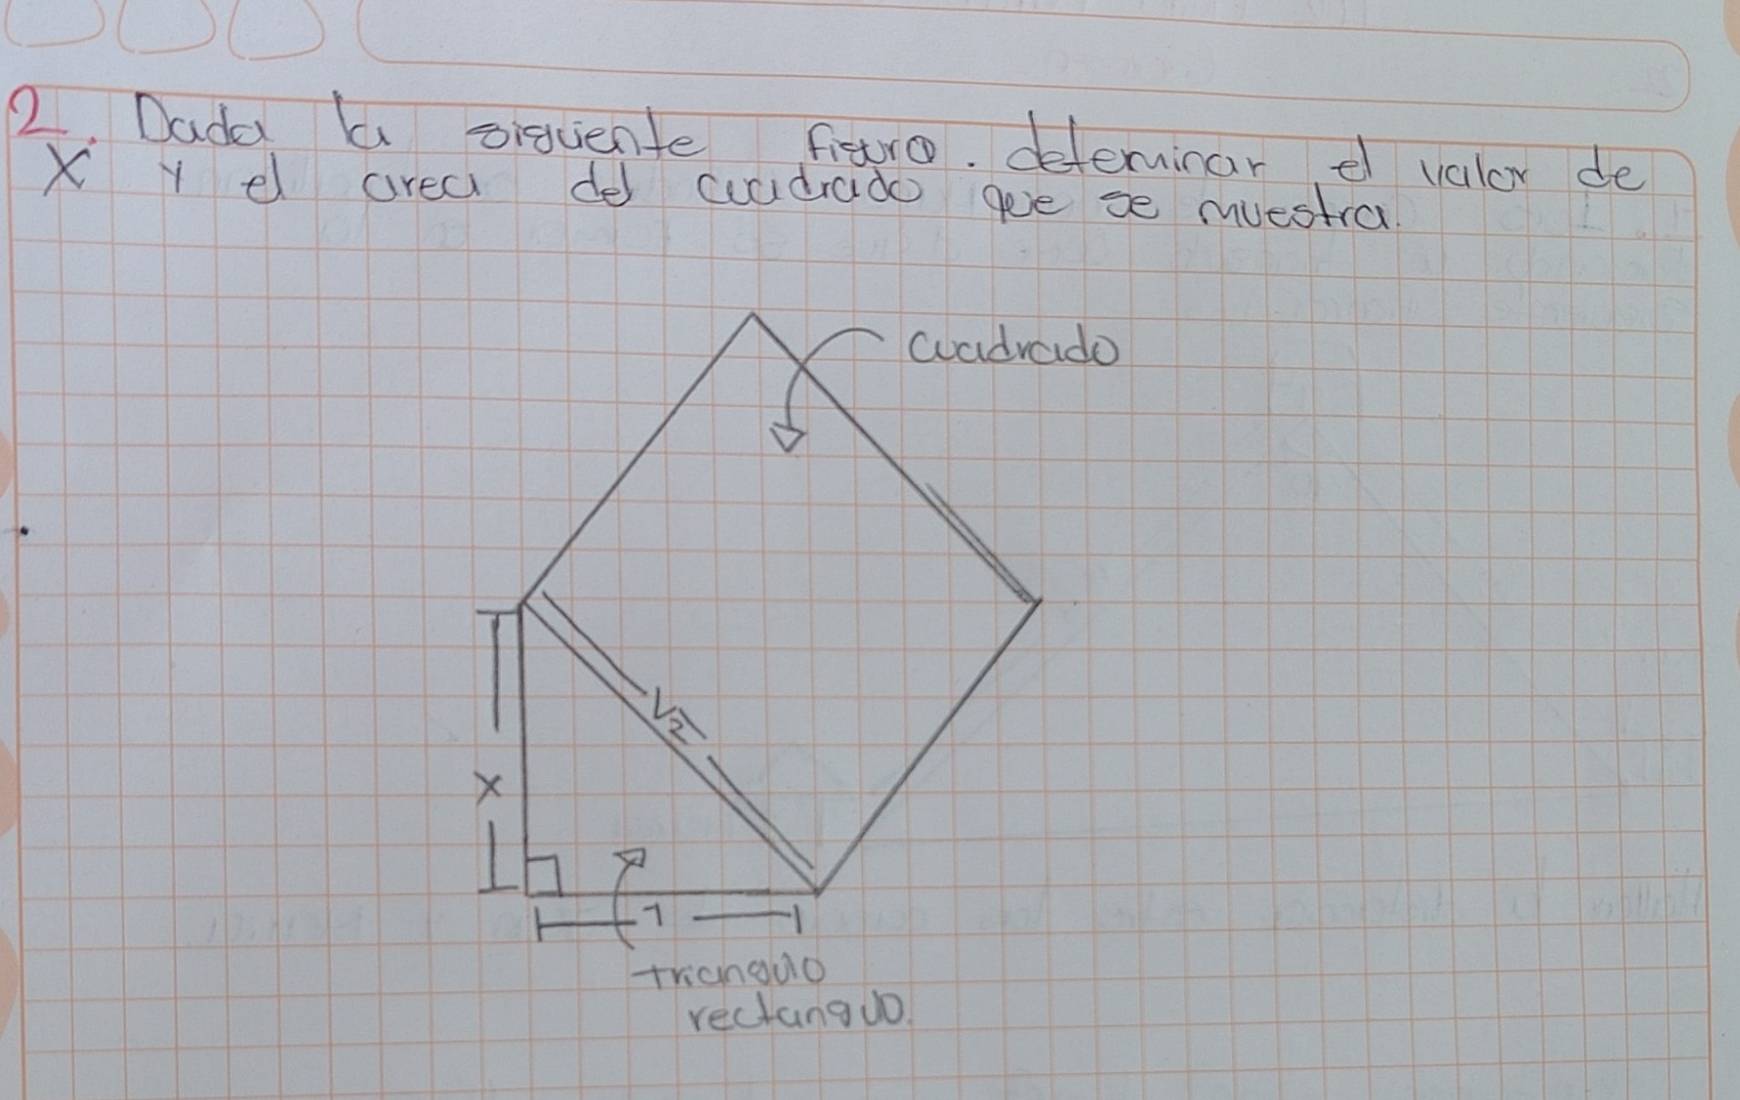 2. Dada la siguiente figura. determinar el valor de
X y el area del cuadrado que se muestra.
cuadrado
√2
x
1
triangulo
rectangulo.